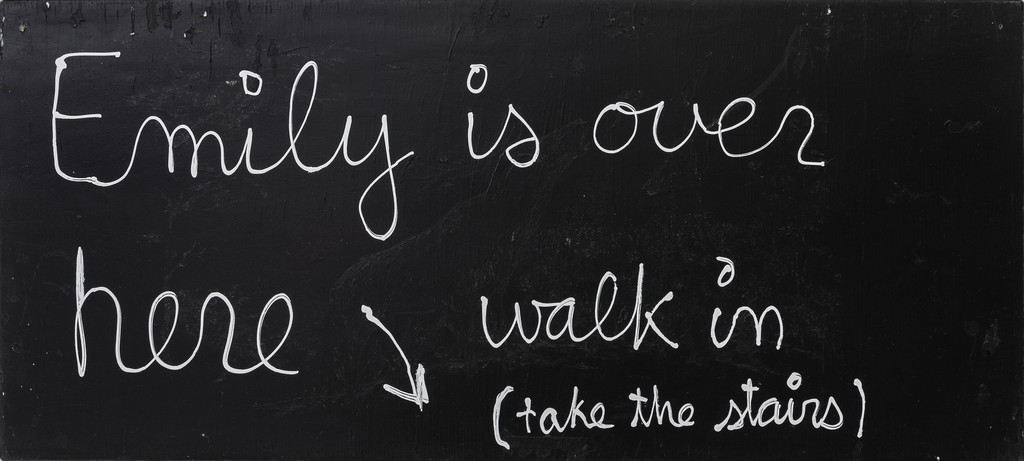 Emily is over
here walk in
(take the stairs)